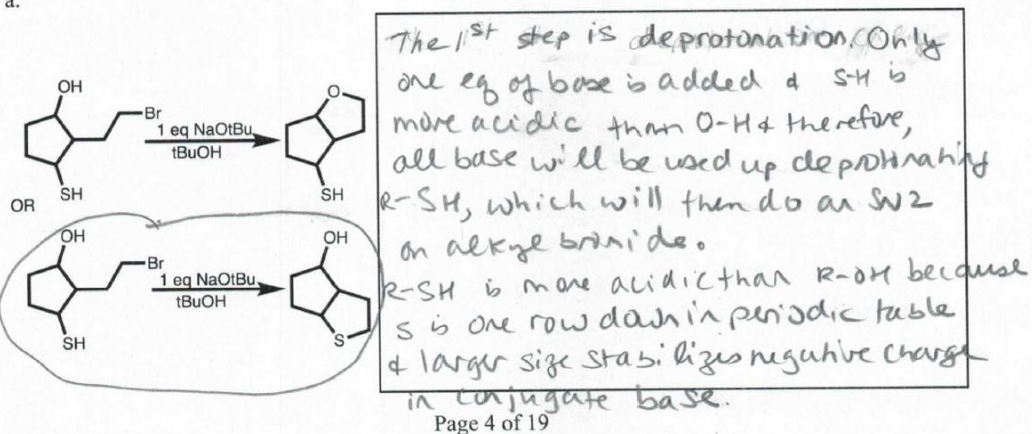 a.
OH
Br
1 eq NaOtBu
tBuOH
SH
O
SH
OR
OH
Br
1 eq NaOtBu
tBuOH
SH
OH
S
The 1st step is deprotonation. Only
one eq of base is added & S-H is
more acidic than O-H & therefore,
all base will be used up deprotinating
R-SH, which will then do an SN2
on alkyl bromide.
R-SH is more acidic than R-OH because
S is one row down in periodic table
& larger size stabilizes negative charge
in conjugate base.
Page 4 of 19